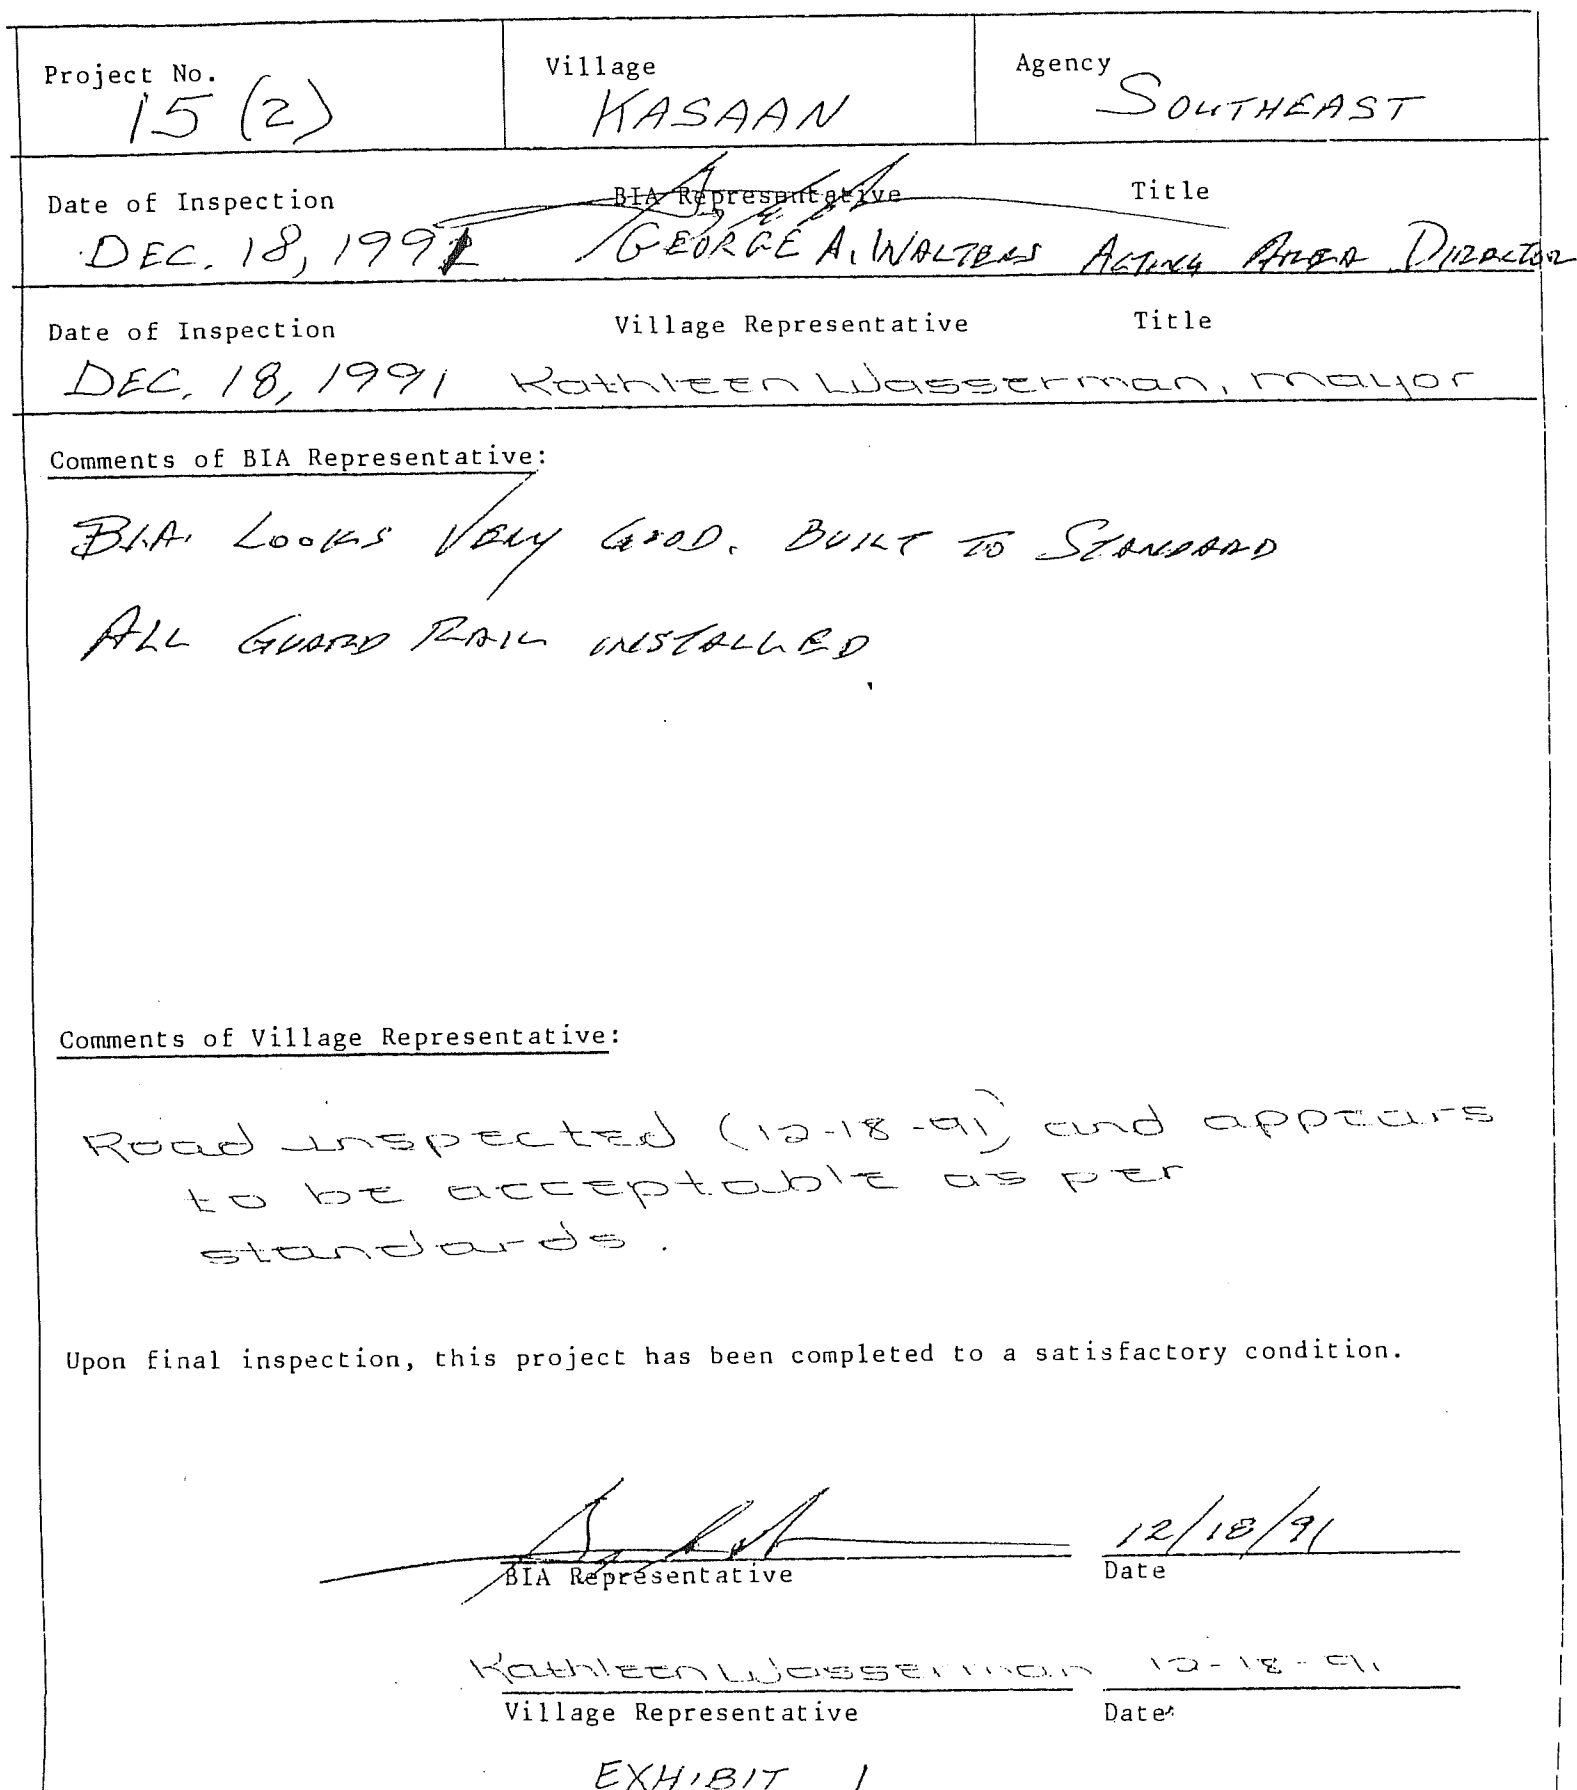 Project No. Village Agency
15 (2) KASAAN SOUTHEAST
Date of Inspection BIA Representative Title
DEC. 18, 1991 GEORGE A. WALTERS ACTING AREA DIRECTOR
Date of Inspection Village Representative Title
DEC. 18, 1991 Kathleen Wasserman, mayor
Comments of BIA Representative:
B.I.A. LOOKS VERY GOOD. BUILT TO STANDARD
ALL GUARD RAIL INSTALLED
Comments of Village Representative:
Road inspected (12-18-91) and appears
to be acceptable as per
standards.
Upon final inspection, this project has been completed to a satisfactory condition.
12/18/91
BIA Representative Date
Kathleen Wasserman 12-18-91
Village Representative Date
EXHIBIT 1